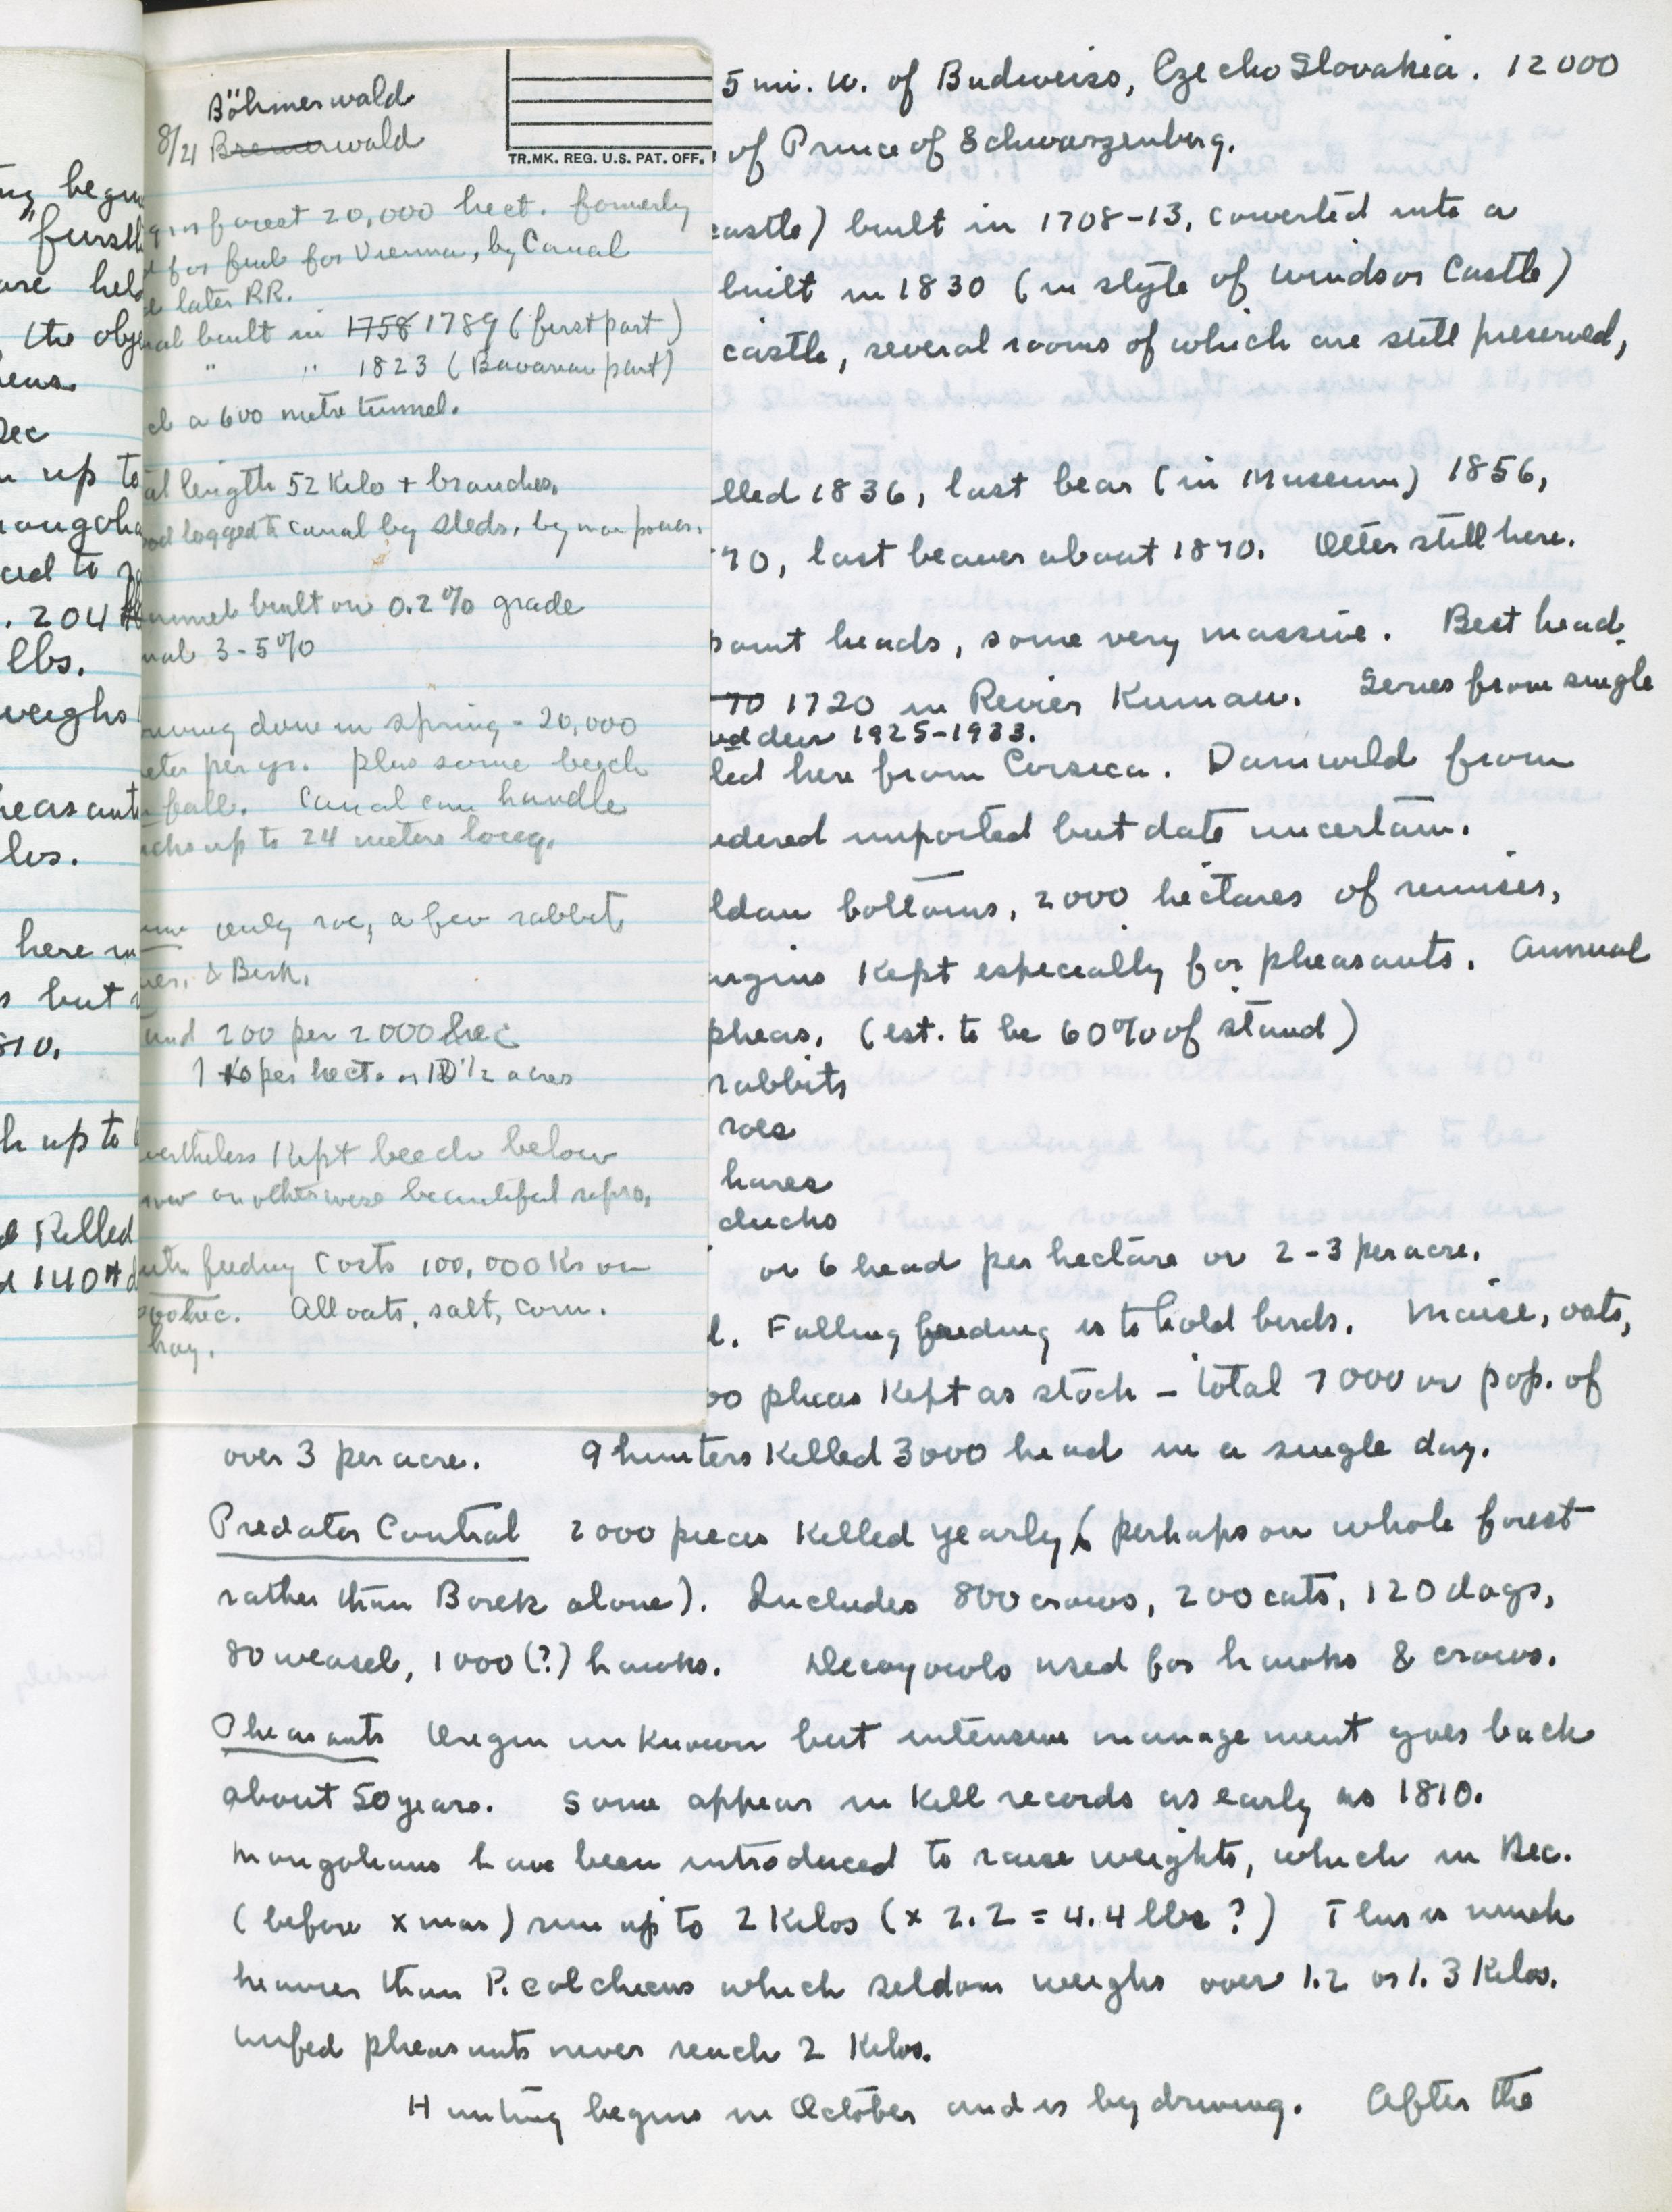 ng begin
"furstl
are hel
the obj
Dec
up to
mongoha
. 204 #
lbs.
weighs
heasant
los.
here in
s but
810.
h up to
Killed
140 #
Böhmerwald
8/21 Bremerwald
TR.MK. REG. U.S. PAT. OFF.
forest 20,000 hect. formerly
for fuel for Vienna, by Canal
later RR.
nal built in 1758 1789 (first part)
" " 1823 (Bavarian part)
a 600 metre tunnel.
al length 52 Kilo + branches.
ood logged to canal by sleds, by man power.
unnel built on 0.2% grade
nal 3-5%
done in spring - 20,000
eter per yr. plus some beech
fall. Canal can handle
up to 24 meters long.
only roe, a few rabbits
& Birk.
200 per 2000 hec
per hect. or 1 D 1/2 acres
vertheless kept beech below
an otherwise beautiful repro.
feeding costs 100,000 Ks on
hec. All oats, salt, corn.
hay.
5 mi. W. of Budweiss, Czecho Slovakia. 12000
of Prince of Schwarzenberg.
castle) built in 1708-13, converted into a
built in 1830 (in style of Windsor Castle)
castle, several rooms of which are still preserved,
lled 1836, last bear (in Museum) 1856,
70, last beaver about 1870. Otter still here.
point heads, some very massive. Best head
70 1720 in Revier Kumau. Series from single
deer 1925-1933.
led here from Corsica. Damwild from
idered imported but date uncertain.
ldau bottoms, 2000 hectares of remises,
argins kept especially for pheasants. Annual
pheas. (est. to be 60% of stand)
rabbits
roes
hares
ducks
or 6 head per hectare or 2-3 per acre.
l. Falling feeding is to hold birds. Maize, oats,
00 pheas kept as stock - total 7000 or pop. of
over 3 per acre. 9 hunters killed 3000 head in a single day.
Predator Control 2000 pieces killed yearly (perhaps on whole forest
rather than Borek alone). Includes 800 crows, 200 cats, 120 dogs,
80 weasels, 1000 (?) hawks. Decoy owls used for hawks & crows.
Pheasants Origin unknown but intensive management goes back
about 50 years. Some appear in kill records as early as 1810.
Mongolians have been introduced to raise weights, which in Dec.
(before xmas) run up to 2 Kilos (x 2.2 = 4.4 lbs ?) This is much
heavier than P. colchicus which seldom weighs over 1.2 or 1.3 Kilos.
Unfed pheasants never reach 2 Kilos.
Hunting begins in October and is by driving. After the